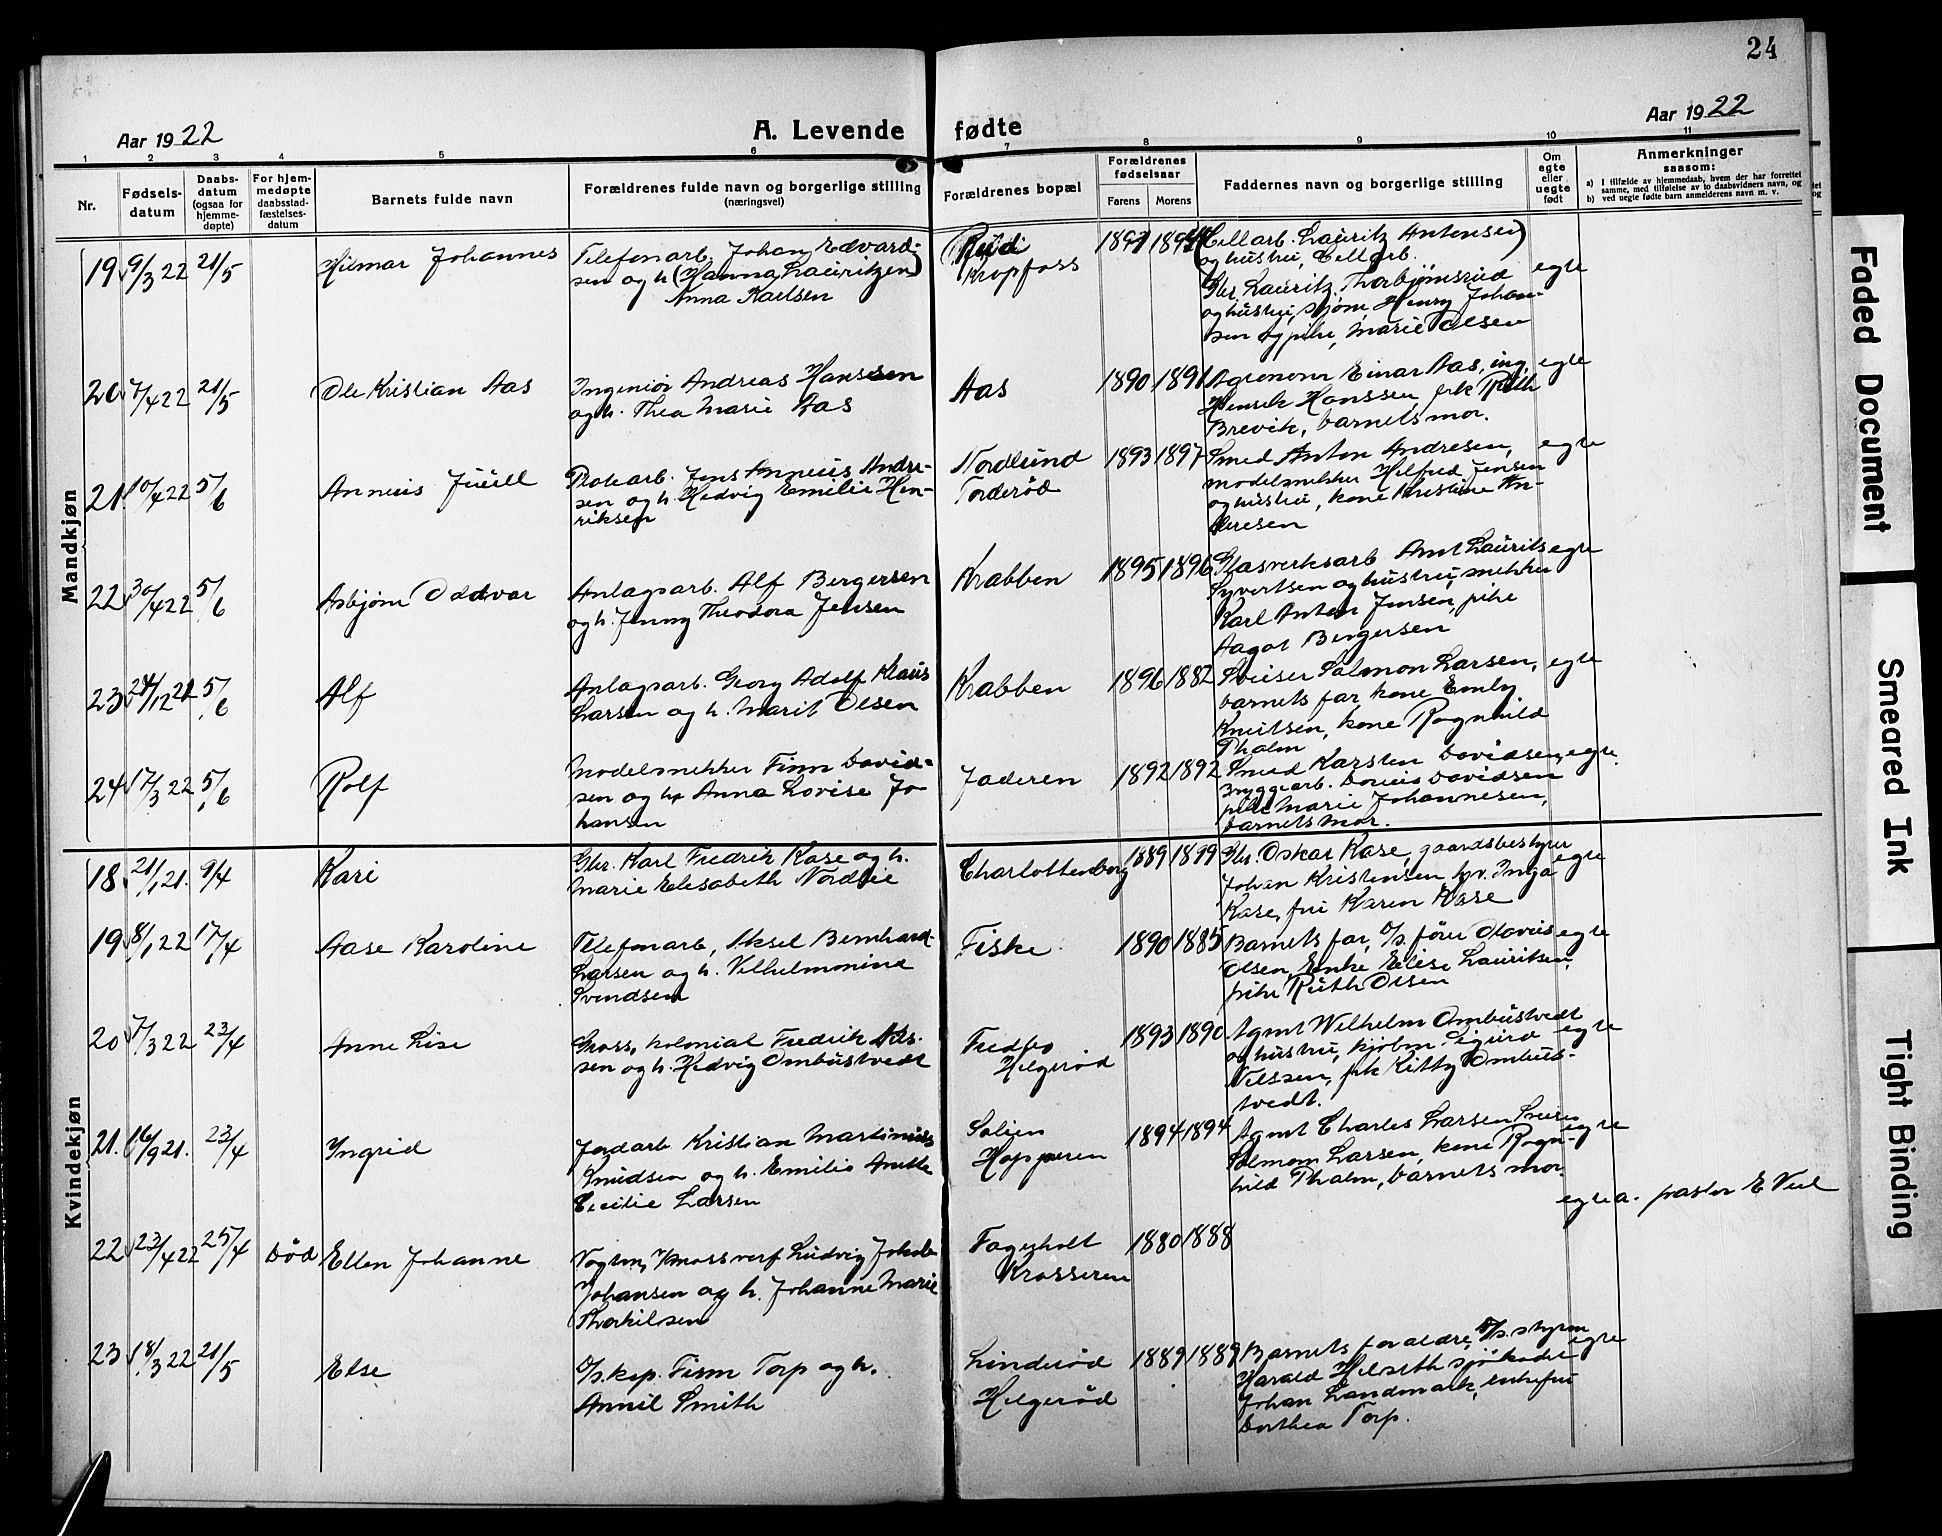 24
Aar 1922
A. Levende fødte
Aar 1922
1 2 3 4 5 6 7 8 9 10 11
Nr.
Fødsels-
datum
Daabs-
datum
(ogsaa for
hjemme-
døpte)
For hjem-
medøpte
daabsstad-
fæstelses-
datum
Barnets fulde navn
Forældrenes fulde navn og borgerlige stilling
(næringsvei)
Forældrenes bopæl
Forældrenes
fødselsaar
Farens Morens
Faddernes navn og borgerlige stilling
Om
egte
eller
uegte
født
Anmerkninger
saasom:
a) I tilfælde av hjemmedaab, hvem der har forrettet
samme, med tilføielse av to daabsvidners navn, og
b) ved uegte fødte barn anmelderens navn m. v.
Mandkjøn
19 9/3 22 21/5
Hilmar Johannes
Telefonarb. Johan Edvard-
sen og h (Hanna Lauritzen)
Anna Karlsen
Kropfoss
1897
(Cellarb. Lauritz Antonsen
og hustru, Cellarb.
Gbr. Lauritz Thorbjørnsrud
og hustru, Henry Johan-
sen og pike, Marie Olsen
egte
20 7/4 22 21/5
Ole Kristian Aas
Ingeniør Andreas Hanssen
og h. Thea Marie Aas
Aas
1890 1891
Agronom Einar Aas, ing.
Henrik Hanssen, frk Ruth
Brevik, barnets mor.
egte
21. 10/4 22 5/6
Annæus Juell
Jens Annæus Andre-
sen og h. Hedvig Emilie Hen-
riksen
Nordlund
Torderød
1893 1897
Smed Anton Andresen,
modelsnekker Hilfred Jensen
og hustru, kone Kristine An-
dresen
egte
22 30/4 22 5/6
Asbjørn Oddvar
Anlægsarb. Alf Bergersen
og h. Jenny Theodora Jensen
Krabben
1895 1896
Glasverksarb Lauritz
Syvertsen og hustru, snekker
Karl Anton Jensen, pike
Aagot Bergersen
egte
23 5/6
Alf
Anlægsarb. Georg Adolf Klaus
Larsen og h. Marit Olsen
Krabben
1896 1882
Sveiser Salmon Larsen,
barnets far, kone Emly
Knutsen, kone Ragnhild
Tholm
egte
24 17/3 22 5/6
Rolf
Modelsnekker Finn David-
sen og h. Anna Lovise Jo-
hansen
Jaderen
1892 1892
Smed Karsten Davidsen,
Bryggearb. Davidsen
pike Marie Johannesen,
barnets mor.
egte.
Kvindekjøn
18 21/1 21. 9/4
Kari
Gbr. Karl Fredrik Kase og h.
Marie Elisabeth Nordlie
Charlottenberg
1889 1899
Gbr. Oskar Kase, gaardsbestyrer
Johan Kristensen, Inga
Kase, fru Karen Kase
egte
19 8/1 22 17/4
Aase Karoline
Telefonarb, Aksel Bernhard
Larsen og h. Vilhelmonine
Svendsen
Fiske
1890 1885
Barnets far, Olavus
Olsen, Enke Elise Lauritsen,
pike Ruth Olsen
egte
20 7/3 22 23/4
Anne Lise
Gross, kolonial Fredrik Nils-
sen og h. Hedvig Ombustvedt
Fredbo
Helgerød
1893 1890
Agent Wilhelm Ombustvedt
og hustru, kjøbm Sigurd
Nilssen, frk Kitty Ombus-
tvedt.
egte
21. 16/9 21. 23/4
Ingrid
Jordarb Kristian Martinius
Knudsen og h. Emilie Anette
Cecilie Larsen
Solgen
Hopperen
1894 1894
Agent Charles Larsen, Sveiser
Salmon Larsen, kone Ragn-
hild Tholm, barnets mor
egte
22 23/4 22 25/4 Død
Ellen Johanne
Vogtm. Moss verf Ludvig
Johansen og h. Johanne Marie
Thorkilsen
Fagerholt
Krosseren
1880 1888
egte a. pastor E Veel
23 18/3 22 21/5
Else
D/s. kap. Finn Torp og h.
Annil Smith
Linderød
Helgerød
1889 1889
Barnets foraldre, D/s. styrm
Harald Helseth, sjökadet
Johan Landmark, enkefru
Dorthea Torp.
egte
Faded Document
Smeared Ink
Tight Binding